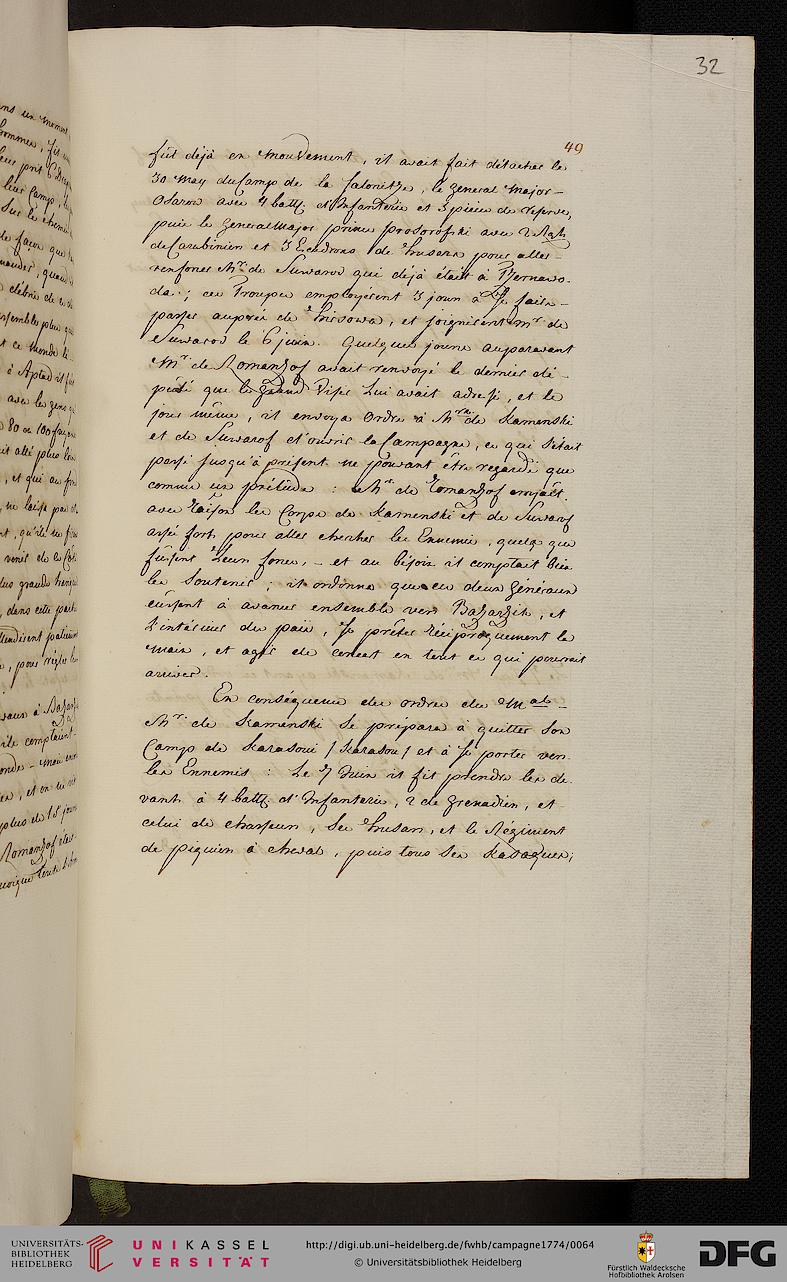 32
49
fût déjà en mouvement, il avait fait détacher le
30 May du Camp de la Jalonitze, le general Major-
Osarow avec 4 batt. d'Infanterie et 3 pièces de reserve,
puis le General Major prince prosorofski avec 2 Rgts
de Carabiniers et 3 Escadrons de husars pour aller
renforcer Mr. de Suwarow qui déjà était à Tzernawo-
da; ces Troupes employèrent 3 jours à se faire
passer auprès de hirsowa, et joignirent Mr de
Suwarow le 6 juin. Quelques jours auparavant
Mr. de Romanzof avait renvoyé le dernier dé-
puté que le grand Visir lui avait adressé, et le
jour même, il envoya Ordre à Mrs. de Kamenski
et de Suwarof d'ouvrir la Campagne, ce qui s'était
passé jusqu'à présent ne pouvant être regardé que
comme un prélude: Mr. de Romanzof croyait
avec raison les Corps de Kamenski et de Suwarof
assés forts pour aller chercher les Ennemis, quelq que
fussent leurs forces, - et au besoin il comptait bien
les Soutenir; il ordonna que ces deux généraux
eussent à avancer ensemble vers Bazarzik, et
l'intérieur du païs, se prêter réciproquement la
main, et agir de concert en tout ce qui pourrait
arriver.
En conséquence des ordres du Mal-
Mr. de Kamenski se prépara à quitter son
Camp de Karasoui / Karasou / et à se porter vers
les Ennemis: Le 7 Juin il fit prendre les de-
vants à 4 batt. d'Infanterie, 2 de grenadiers, et
celui de chasseurs, ses husars, et le Régiment
de piquiers à cheval, puis tous ses Kasaques;
UNIVERSITÄTS-
BIBLIOTHEK
HEIDELBERG
UNIKASSEL
VERSITÄT
http://digi.ub.uni-heidelberg.de/fwhb/campagne1774/0064
© Universitätsbibliothek Heidelberg
Fürstlich Waldecksche
Hofbibliothek Arolsen
DFG